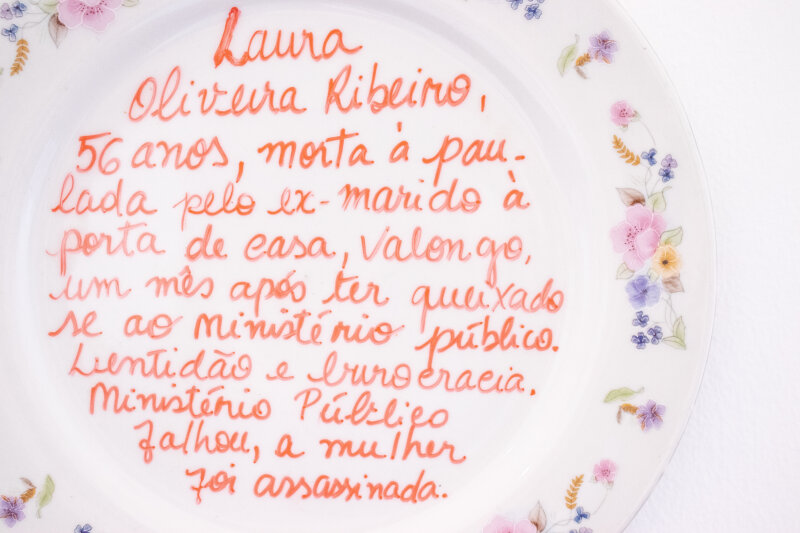 Laura
Oliveira Ribeiro,
56 anos, morta à pau-
lada pelo ex-marido à
porta de casa, Valongo,
um mês após ter queixado
se ao Ministério público.
Lentidão e burocracia.
Ministério Público
falhou, a mulher
foi assassinada.